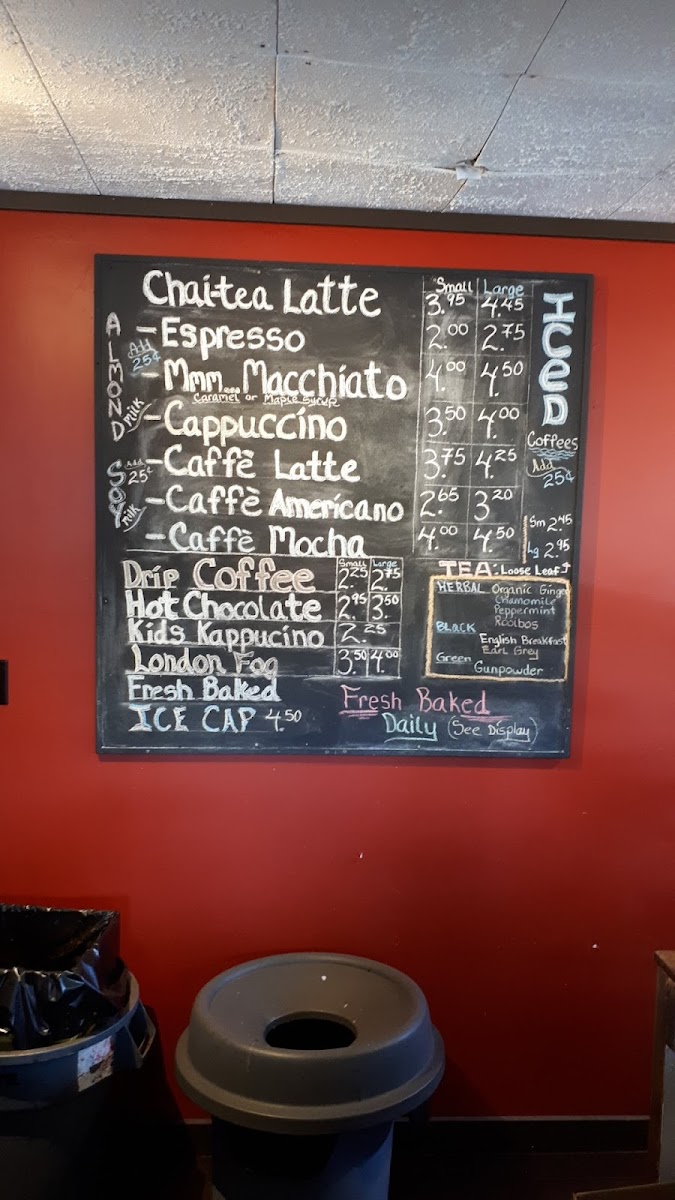 Small Large
Chai-tea Latte 3.95 4.45
- Espresso 2.00 2.75
- Mmm... Macchiato 4.00 4.50
Caramel or Maple Syrup
- Cappuccino 3.50 4.00
- Caffè Latte 3.75 4.25
- Caffè Americano 2.65 3.20
- Caffè Mocha 4.00 4.50
ALMOND milk
Add 25¢
SOY milk
Add 25¢
ICeD
Coffees
Add 25¢
Sm 2.45
Lg 2.95
Small Large
Drip Coffee 2.25 2.75
Hot Chocolate 2.95 3.50
Kids Kappucino 2.25
London Fog 3.50 4.00
Fresh Baked
ICE CAP 4.50
TEA: Loose Leaf
HERBAL Organic Ginger
Chamomile
Peppermint
Rooibos
BLACK
English Breakfast
Earl Grey
Green
Gunpowder
Fresh Baked
Daily (See Display)